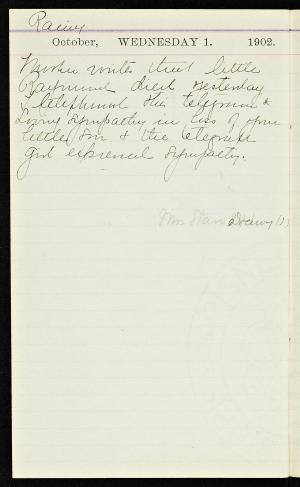 Rainy
October, WEDNESDAY 1. 1902.
Mother writes that little
Raymond died yesterday
I telephoned this telegram &
Loving sympathy in loss of your
little son & the telegraph
girl expressed sympathy.